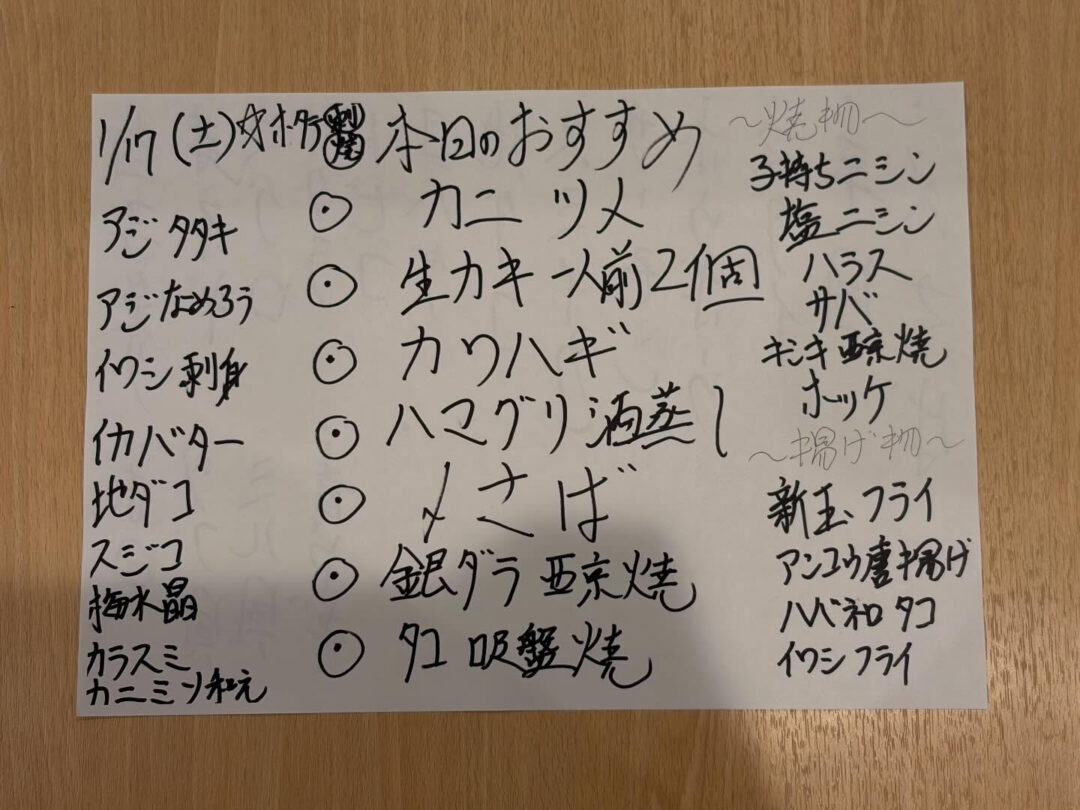 1/17(土)☆ホタテ 刺 焼
アジタタキ
アジなめろう
イワシ刺身
イカバター
地ダコ
スジコ
梅水晶
カラスミ
カニミソ和え
本日のおすすめ
⦿ カニツメ
⦿ 生カキ 一人前2個
⦿ カワハギ
⦿ ハマグリ酒蒸し
⦿ 〆さば
⦿ 銀ダラ西京焼
⦿ タコ吸盤焼
〜焼物〜
子持ちニシン
塩ニシン
ハラス
サバ
キンキ西京焼
ホッケ
〜揚げ物〜
新玉フライ
アンコウ唐揚げ
ハバネロタコ
イワシフライ